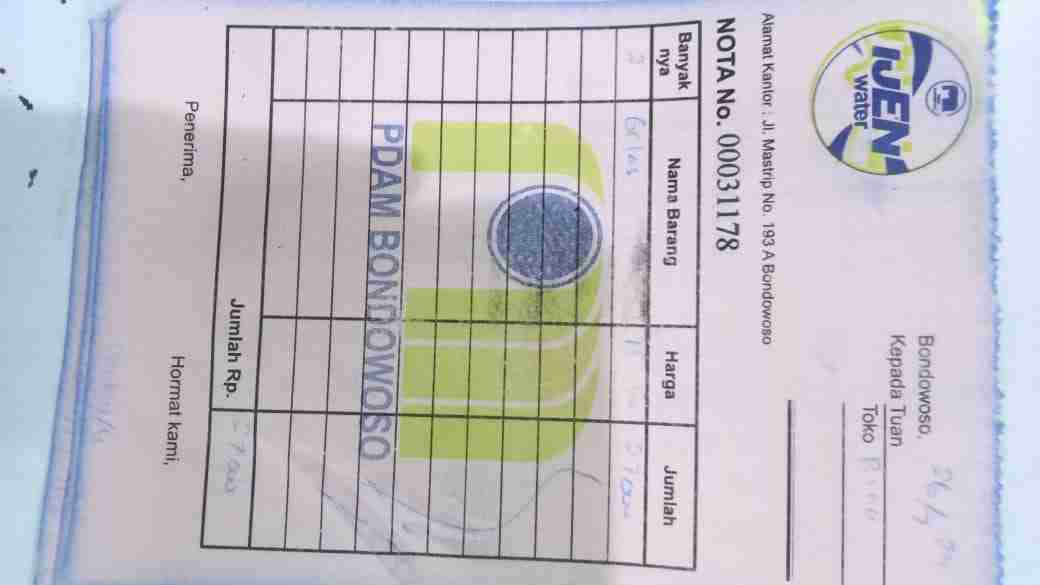 IJEN
water
Alamat Kantor : Jl. Mastrip No. 193 A Bondowoso
Bondowoso,
Kepada Tuan
Toko
NOTA No. 00031178
Banyak nya Nama Barang Harga Jumlah
Gelas
PDAM BONDOWOSO
Jumlah Rp.
Penerima, Hormat kami,